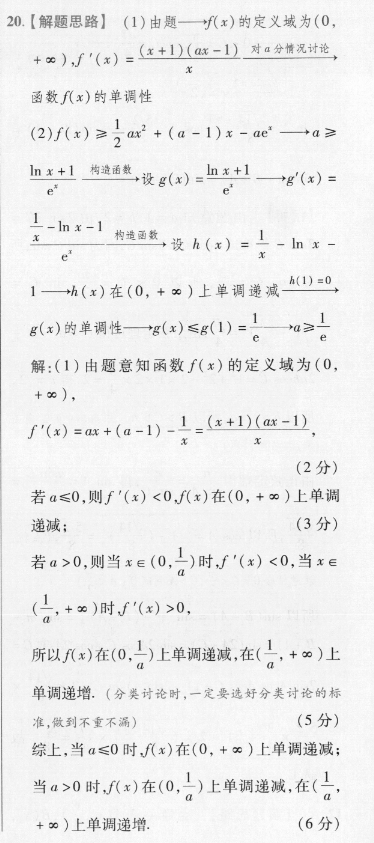 20.【解题思路】 (1)由题⟶f(x)的定义域为(0,
+∞),f′(x)=\frac{(x+1)(ax-1)}{x} \xrightarrow{对a分情况讨论}
函数f(x)的单调性
(2)f(x)≥\frac{1}{2}ax²+(a-1)x-ae^x⟶a≥
\frac{\ln x+1}{e^x} \xrightarrow{构造函数}设g(x)=\frac{\ln x+1}{e^x}⟶g′(x)=
\frac{\frac{1}{x}-\ln x-1}{e^x} \xrightarrow{构造函数}设h(x)=\frac{1}{x}-ln x-
1⟶h(x)在(0,+∞)上单调递减\xrightarrow{h(1)=0}
g(x)的单调性⟶g(x)≤g(1)=\frac{1}{e}⟶a≥\frac{1}{e}
解:(1)由题意知函数f(x)的定义域为(0,
+∞),
f′(x)=ax+(a-1)-\frac{1}{x}=\frac{(x+1)(ax-1)}{x},
(2分)
若a≤0,则f′(x)<0,f(x)在(0,+∞)上单调
递减; (3分)
若a>0,则当x∈(0,\frac{1}{a})时,f′(x)<0,当x∈
(\frac{1}{a},+∞)时,f′(x)>0,
所以f(x)在(0,\frac{1}{a})上单调递减,在(\frac{1}{a},+∞)上
单调递增.(分类讨论时,一定要选好分类讨论的标
准,做到不重不漏) (5分)
综上,当a≤0时,f(x)在(0,+∞)上单调递减;
当a>0时,f(x)在(0,\frac{1}{a})上单调递减,在(\frac{1}{a},
+∞)上单调递增. (6分)